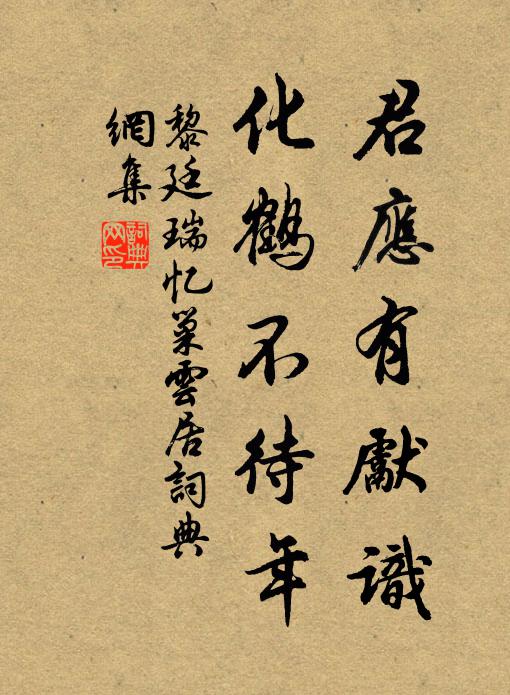 君應有獻識
化鶴不待年
黎廷瑞忆巢雲居詞典
網集
詞典
網印